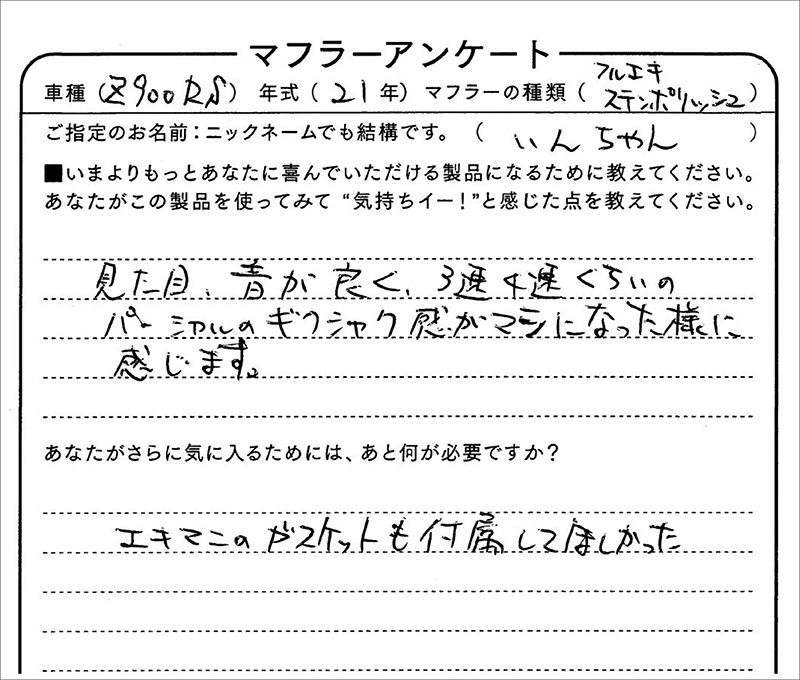 マフラーアンケート
車種（Z900RS） 年式（21年） マフラーの種類（フルエキ ステンポリッシュ）
ご指定のお名前：ニックネームでも結構です。（いんちゃん）
■いまよりもっとあなたに喜んでいただける製品になるために教えてください。
あなたがこの製品を使ってみて“気持ちイー！”と感じた点を教えてください。
見た目、音が良く、3速4速くらいの
パーシャルのギクシャク感がマシになった様に
感じます。
あなたがさらに気に入るためには、あと何が必要ですか？
エキマニのガスケットも付属してほしかった